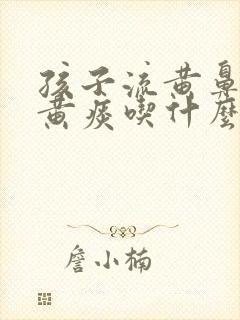 孩子流黃鼻
黃痰喫什麼
詹小楠